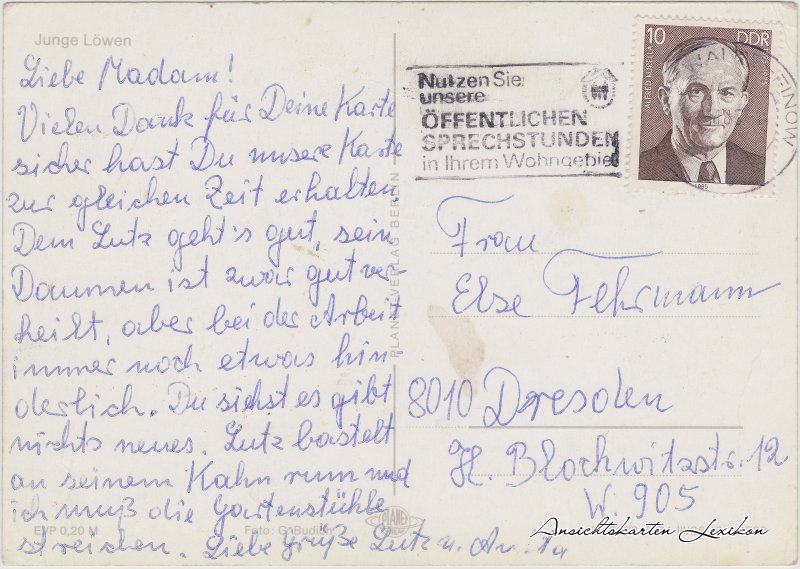 Junge Löwen
Liebe Madam!
Vielen Dank für Deine Karte
sicher hast Du unsere Karte
zur gleichen Zeit erhalten.
Dem Lutz geht's gut, sein
Daumen ist zwar gut ver-
heilt, aber bei der Arbeit
immer noch etwas hin
derlich. Du siehst es gibt
nichts neues. Lutz bastelt
an seinem Kahn rum und
ich muß die Gartenstühle
streichen. Liebe Grüße Lutz u. Anita
EVP 0,20 M
Foto: G. Budich
PLANET-VERLAG BERLIN
PLANET
Nutzen Sie
unsere
ÖFFENTLICHEN
SPRECHSTUNDEN
in Ihrem Wohngebiet
10 DDR
ALFRED KURELLA
1985
FINOW
Frau
Else Fehrmann
8010 Dresden
H. Blochwitzstr. 12
W 905
Ansichtskarten Lexikon